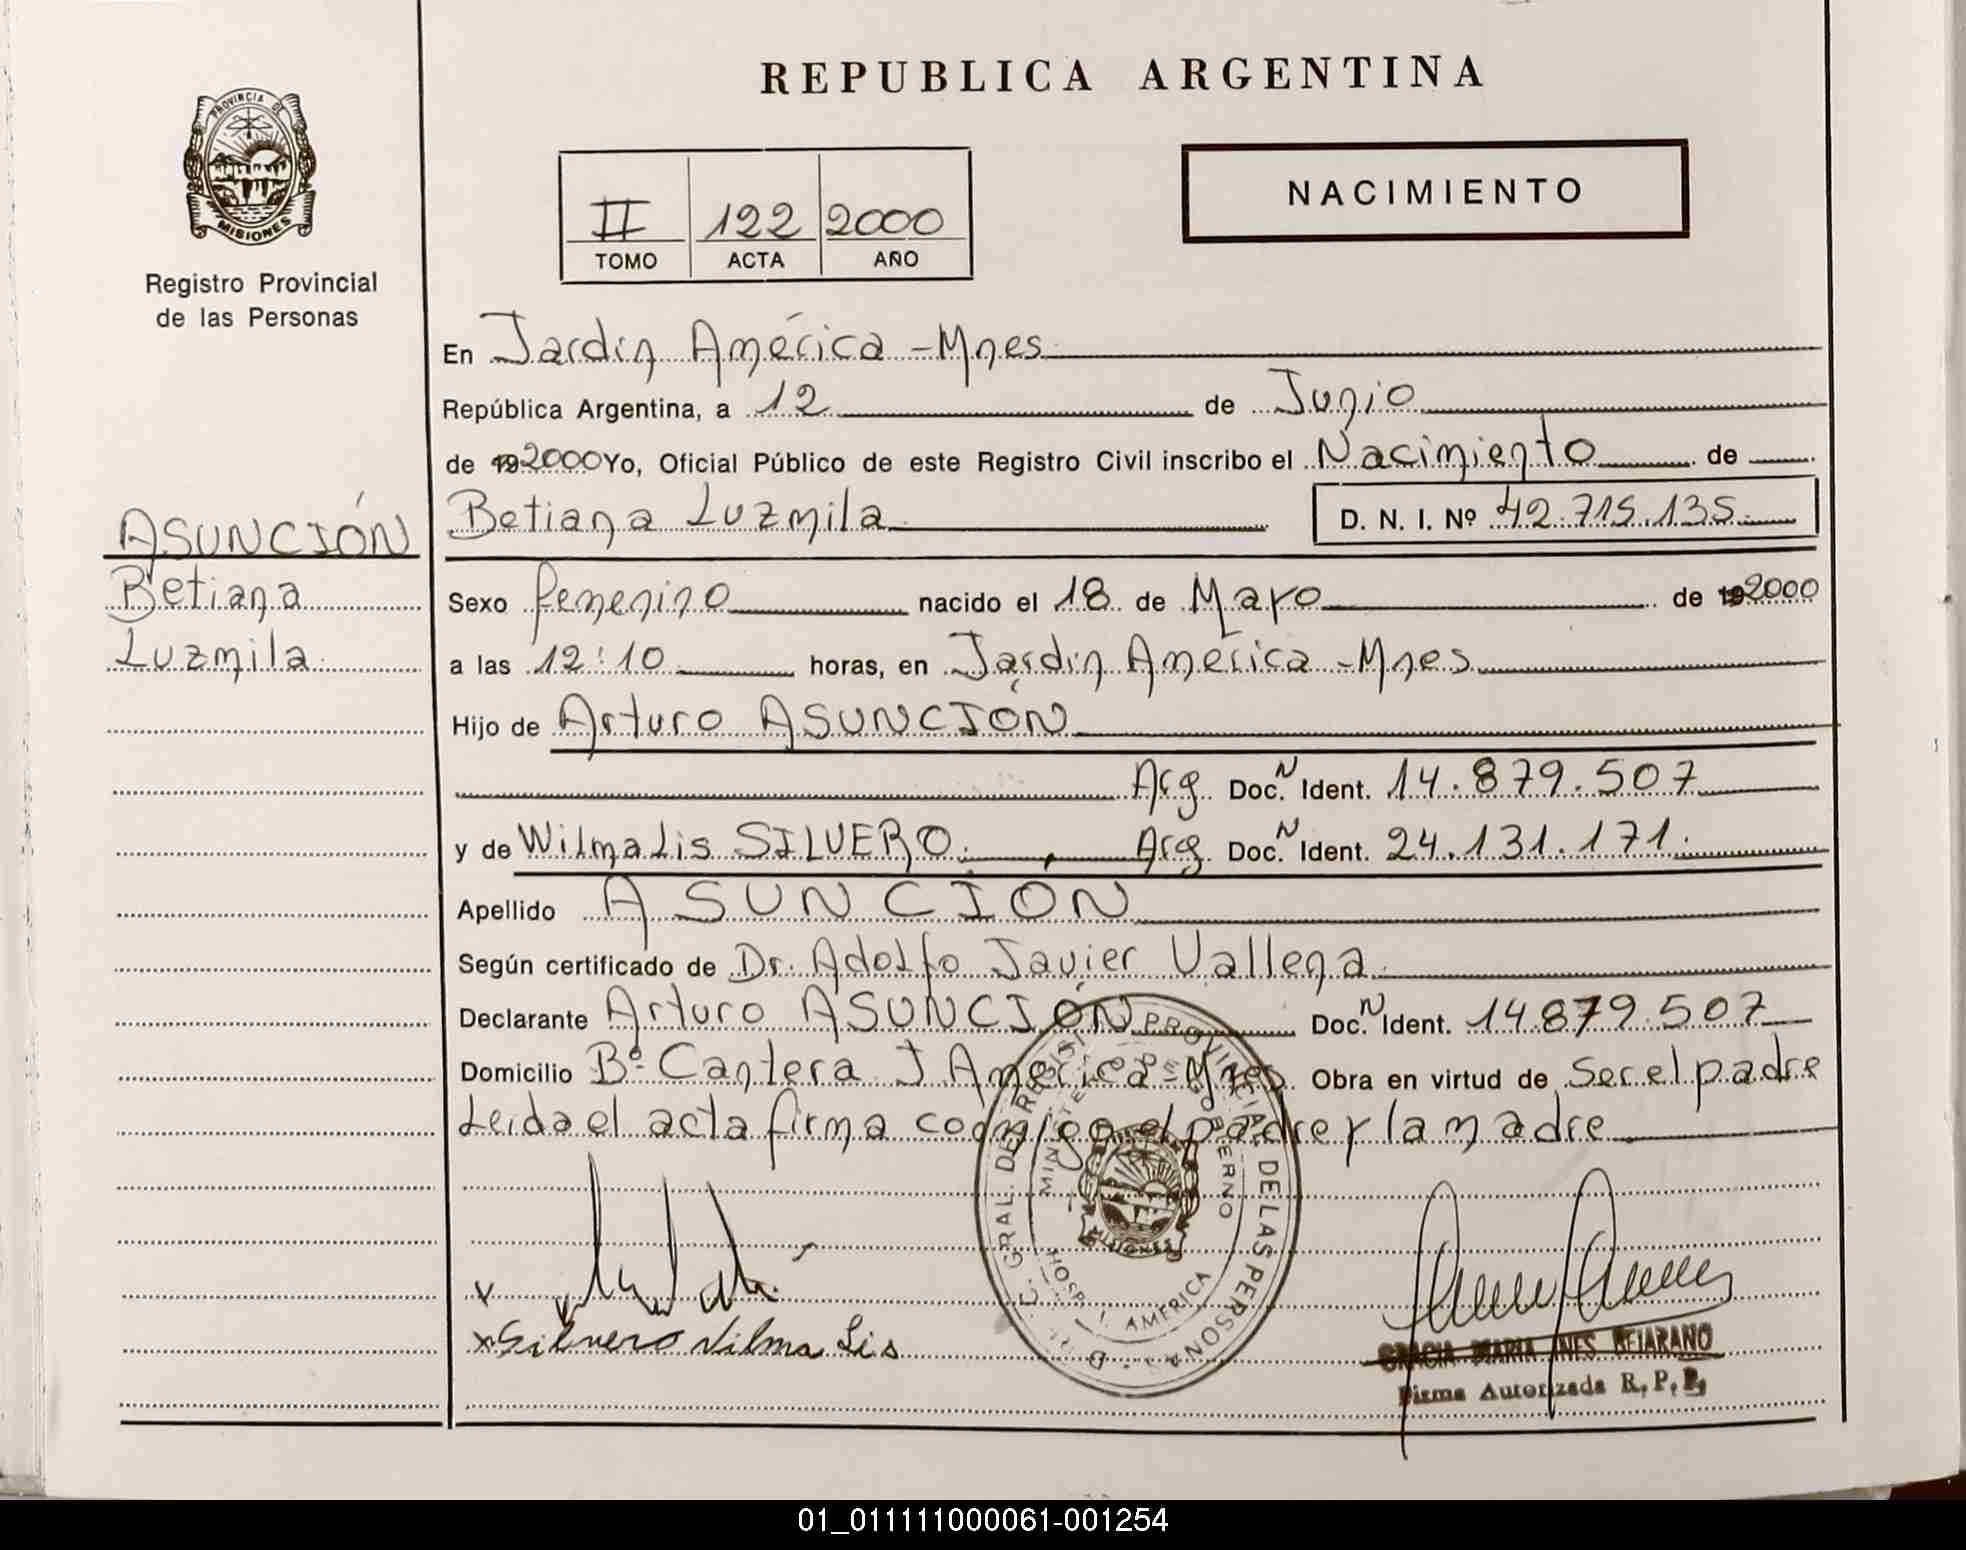 REPUBLICA ARGENTINA
PROVINCIA DE
MISIONES
Registro Provincial
de las Personas
II 122 2000
TOMO ACTA AÑO
NACIMIENTO
En Jardín América - Mnes
República Argentina, a 12 de Junio
de 19 2000 Yo, Oficial Público de este Registro Civil inscribo el Nacimiento de
Betiana Luzmila D. N. I. Nº 42.715.135
ASUNCIÓN
Betiana
Luzmila
Sexo femenino nacido el 18 de Mayo de 19 2000
a las 12:10 horas, en Jardín América - Mnes
Hijo de Arturo ASUNCIÓN
Arg. Doc. N Ident. 14.879.507
y de Wilma Lis SILVERO. Arg. Doc. N Ident. 24.131.171.
Apellido ASUNCIÓN
Según certificado de Dr. Adolfo Javier Vallena
Declarante Arturo ASUNCIÓN Doc. N Ident. 14.879.507
Domicilio Bº Cantera J América - Mnes Obra en virtud de Ser el padre
Leida el acta firma conmigo el padre y la madre
PROVINCIAL DE LAS PERSONAS
MISIONES
HOSP. AMERICA
x Silvero Vilma Lis
GRACIA MARIA INES BEJARANO
Firma Autorizada R. P. P.
01_011111000061-001254